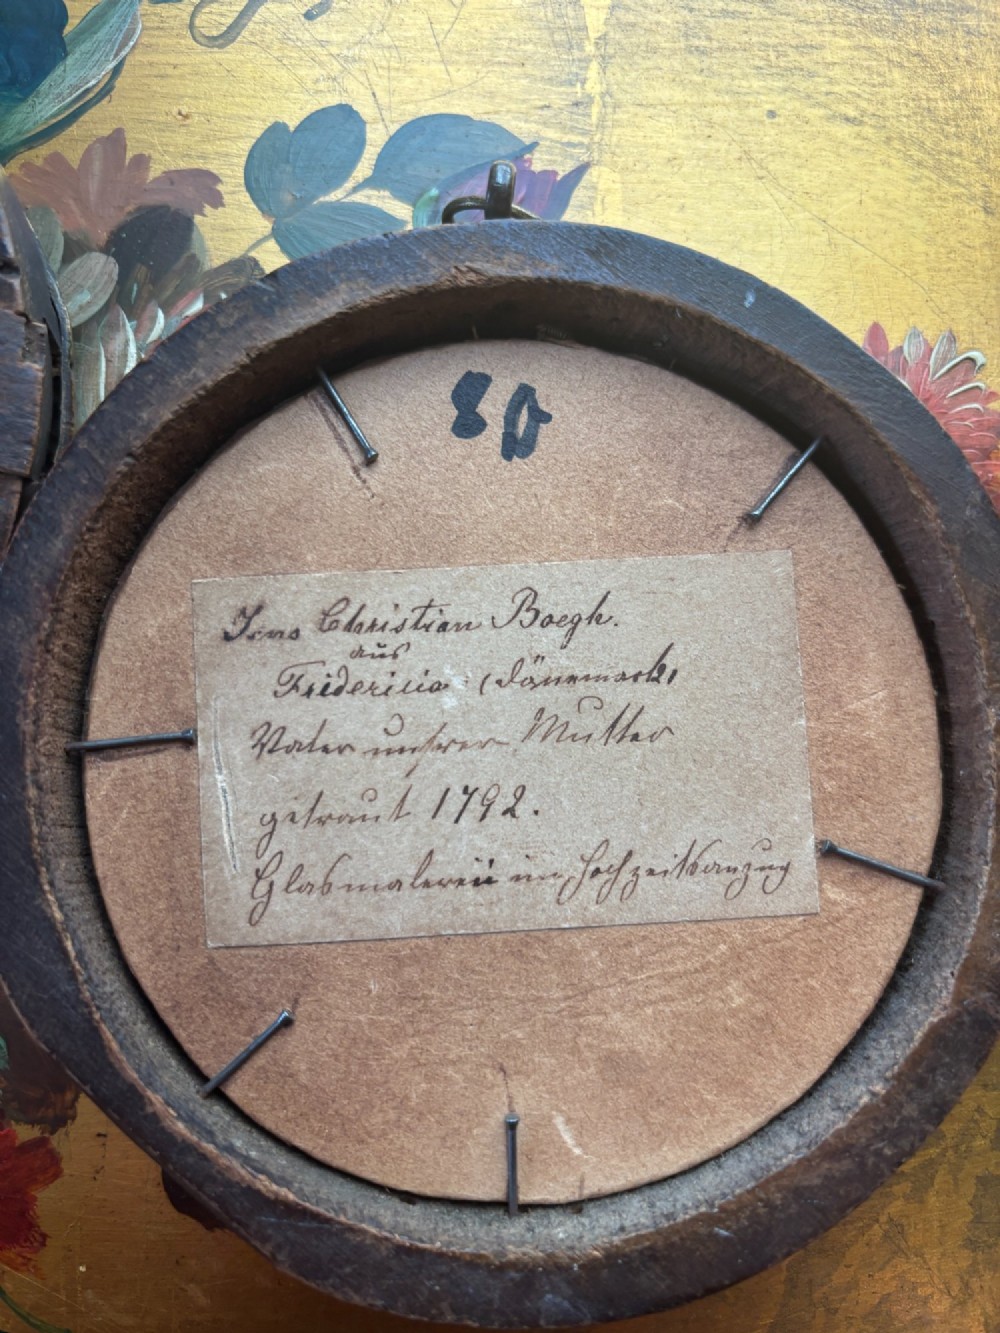 80
Jens Christian Boegh.
aus
Fridericia (Dänemark)
Vater unserer Mutter
getraut 1792.
Glasmalerei im Hochzeitsanzug